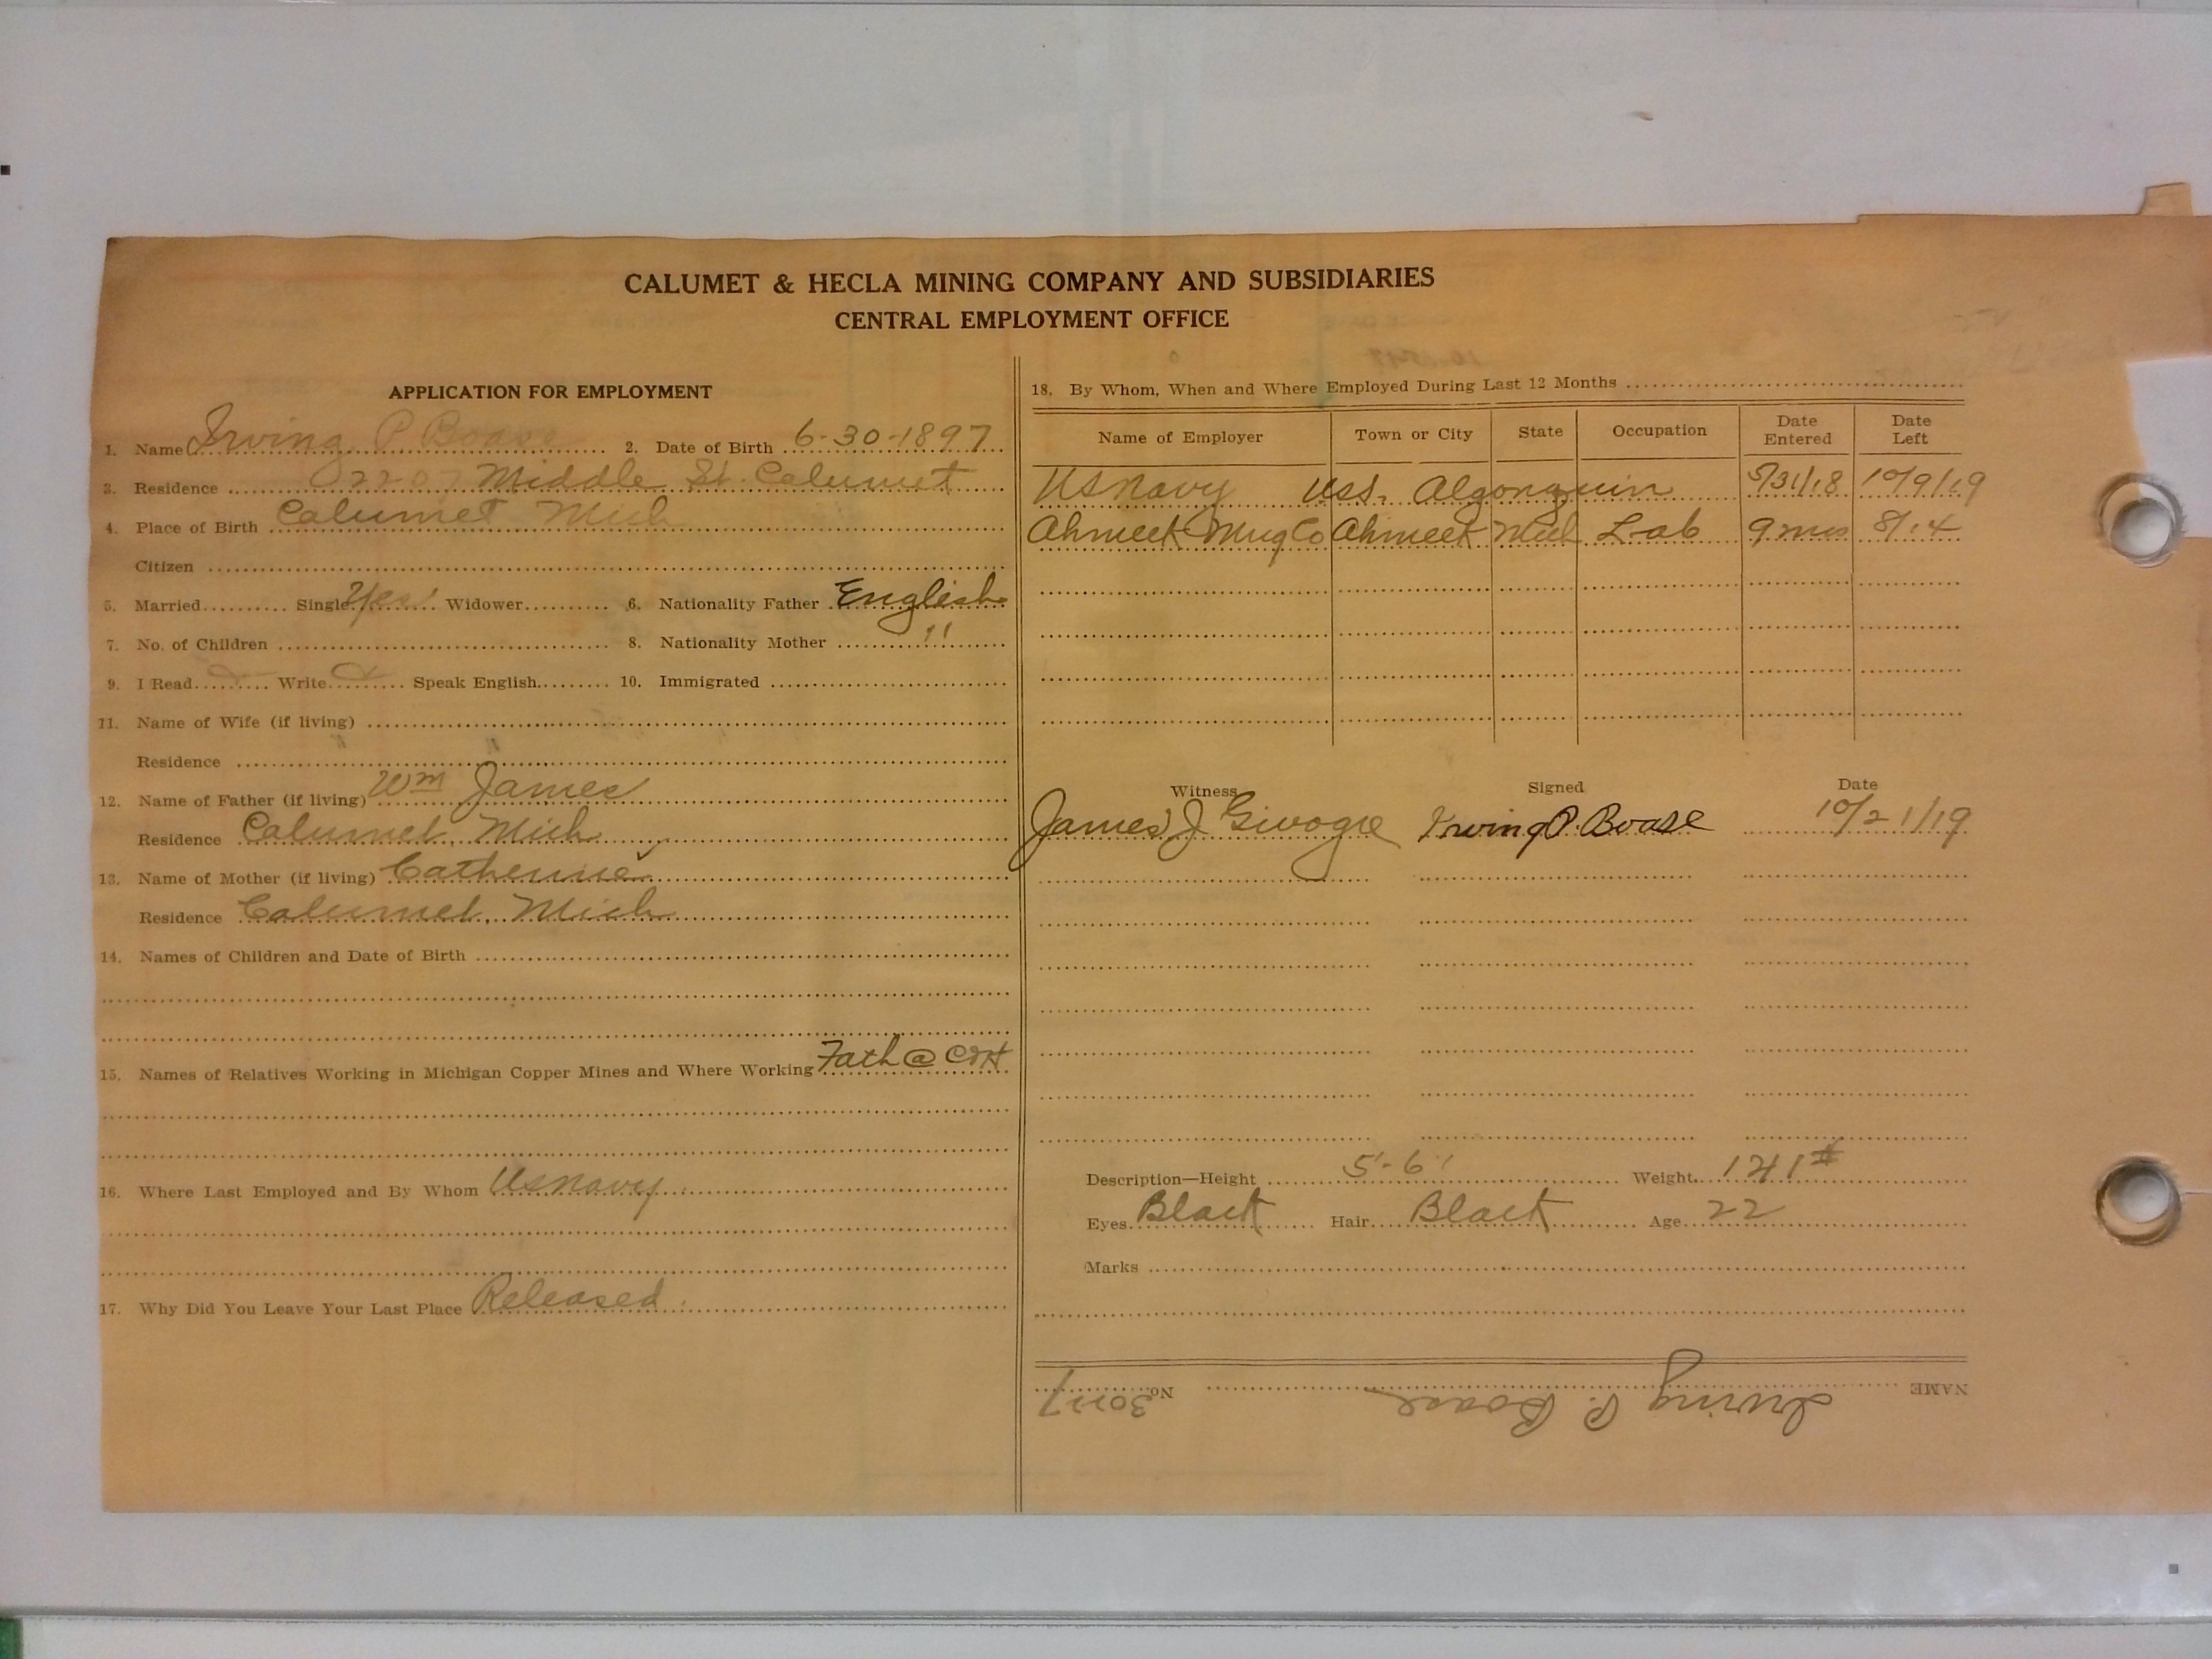 CALUMET & HECLA MINING COMPANY AND SUBSIDIARIES
CENTRAL EMPLOYMENT OFFICE
APPLICATION FOR EMPLOYMENT
1. Name Irving P Boase 2. Date of Birth 6-30-1897
3. Residence 2207 Middle St. Calumet
4. Place of Birth Calumet Mich
Citizen
5. Married Single Yes Widower 6. Nationality Father English
7. No. of Children 8. Nationality Mother "
9. I Read Write Speak English 10. Immigrated
11. Name of Wife (if living)
Residence
12. Name of Father (if living) Wm James
Residence Calumet, Mich
13. Name of Mother (if living) Catherine
Residence Calumet, Mich
14. Names of Children and Date of Birth
15. Names of Relatives Working in Michigan Copper Mines and Where Working Fath @ C&H
16. Where Last Employed and By Whom US Navy
17. Why Did You Leave Your Last Place Released
18. By Whom, When and Where Employed During Last 12 Months
Name of Employer Town or City State Occupation Date Entered Date Left
US Navy USS. Algonquin 5/31/18 10/9/19
Ahmeek Mng Co Ahmeek Mich Lab 9 mos 8/14
Witness Signed Date
James J Irving P. Boase 10/21/19
Description—Height 5'-6" Weight 141#
Eyes Black Hair Black Age 22
Marks
NAME Irving P. Boase No.